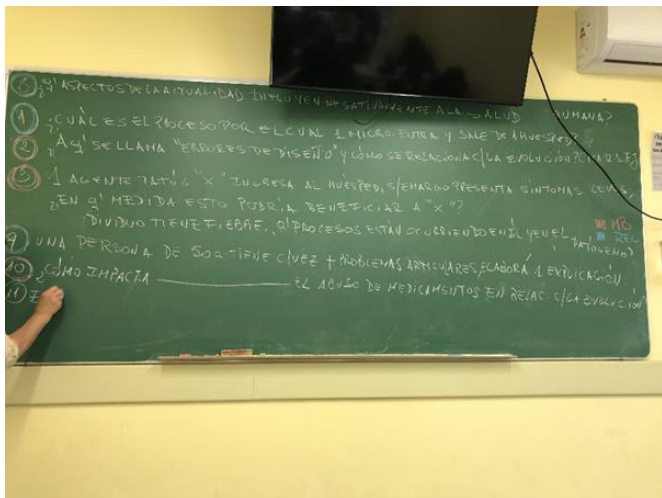 8 ¿q' ASPECTOS DE LA ACTUALIDAD INFLUYEN NEGATIVAMENTE A LA SALUD HUMANA?
1 ¿CUÁL ES EL PROCESO POR EL CUAL 1 MICRO ENTRA Y SALE DE 1 HUÉSPED?
2 ¿A q' SE LLAMA "ERRORES DE DISEÑO" Y CÓMO SE RELACIONA C/LA EVOLUCIÓN? CITAR 1 EJ
3 1 AGENTE PATÓG "X" INGRESA AL HUÉSPED, S/EMBARGO PRESENTA SÍNTOMAS LEVES,
¿EN q' MEDIDA ESTO PODRÍA BENEFICIAR A "X"?
DIVIDUO TIENE FIEBRE, ¿q' PROCESOS ESTÁN OCURRIENDO EN ÉL Y EN EL PATÓGENO?
9 UNA PERSONA DE 50 a. TIENE C/VEZ + PROBLEMAS ARTICULARES, ELABORÁ 1 EXPLICACIÓN.
10 ¿CÓMO IMPACTA ________ EL ABUSO DE MEDICAMENTOS EN RELAC. C/LA EVOLUCIÓN
11